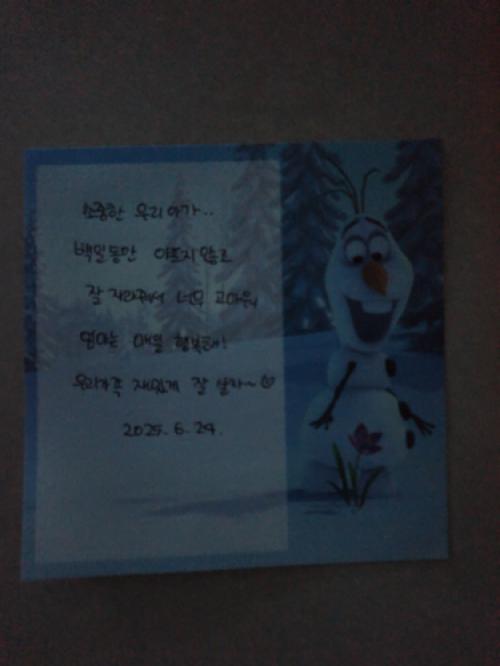 소중한 우리 아가..
백일동안 아프지 않고
잘 자라줘서 너무 고마워
엄마는 매일 행복해!
우리가족 재밌게 잘 살자~♡
2025. 6. 24.